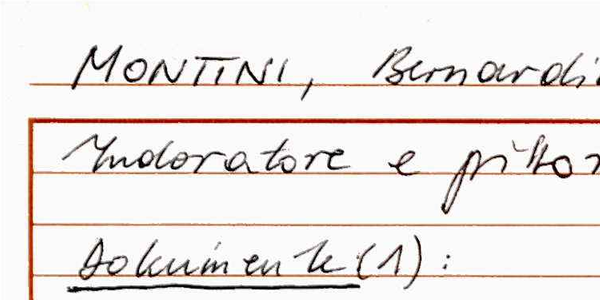 MONTINI, Bernardi
Indoratore e pittor
Dokumente (1):